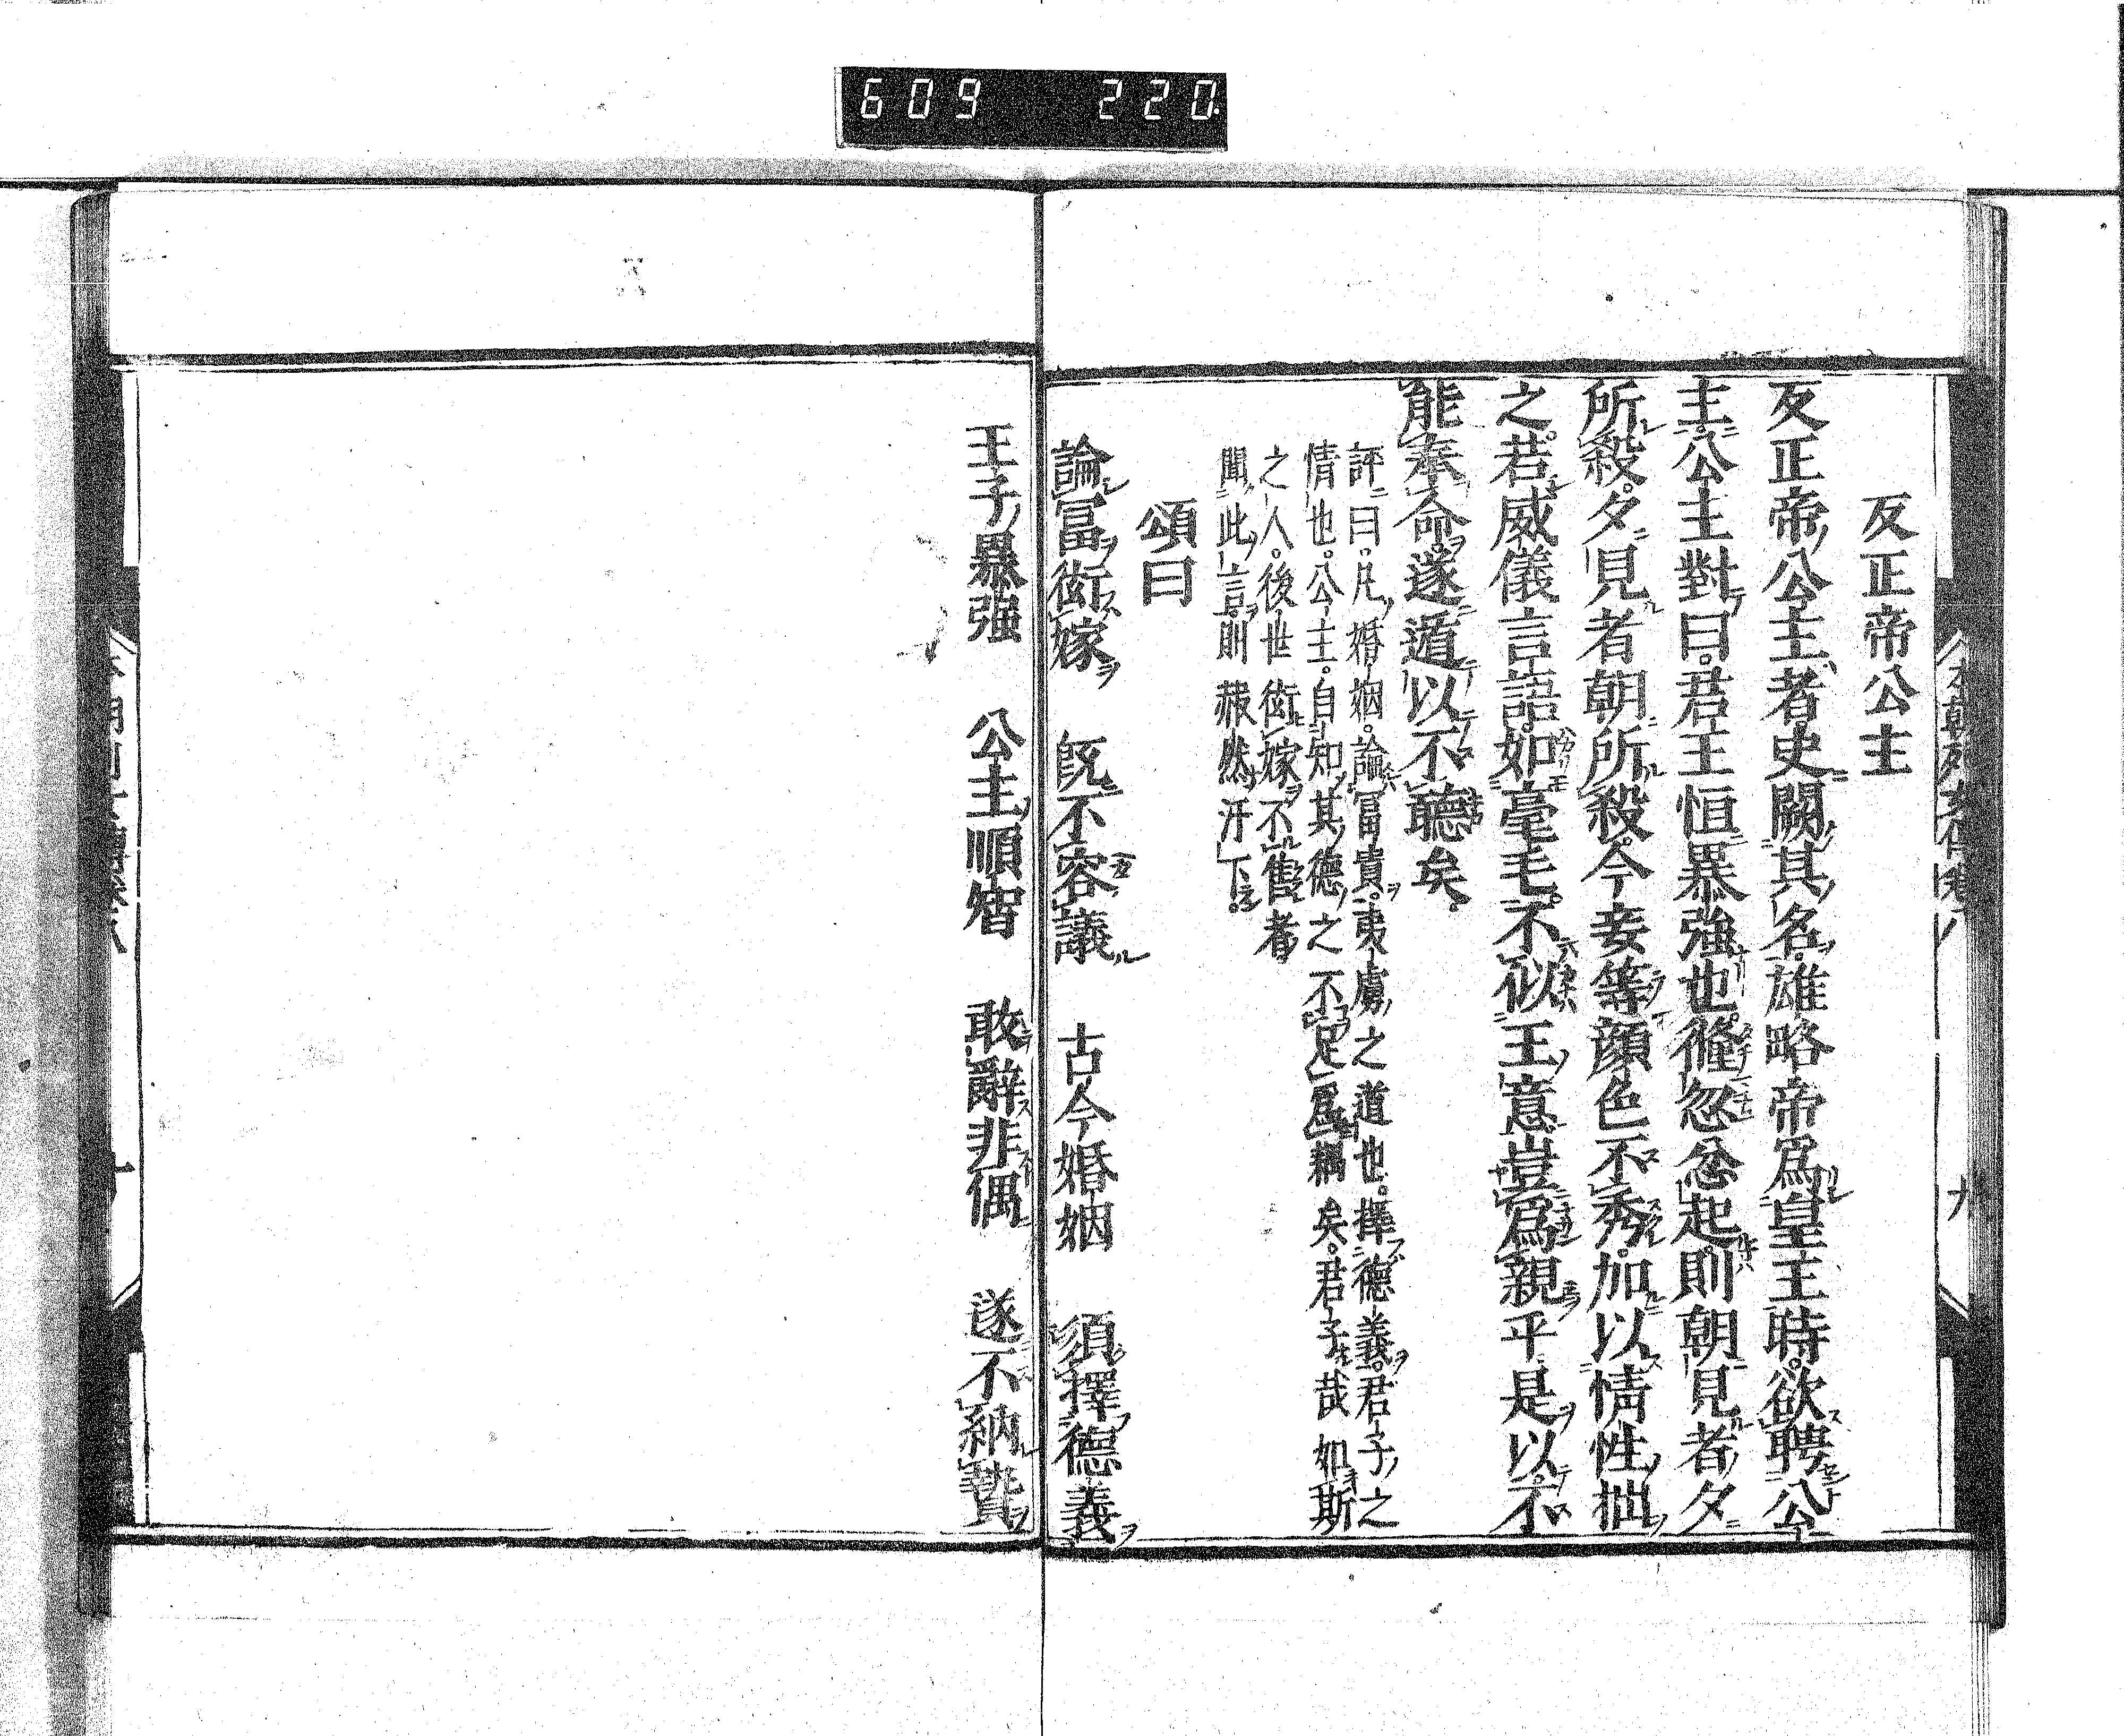 609 220
反正帝公主
反正帝公主者史闕其名雄略帝爲皇王時欲聘公
主公主對曰君王恒暴強也儵忽忿起則朝見者夕
所殺夕見者朝所殺今妾等顔色不秀加以情性拙
之若威儀言語如毫毛不似王意豈爲親乎是以不
能奉命遂遁以不聽矣
評曰凡婚姻論富貴夷虜之道也擇德義君子之
情也公主自知其德之不足爲耦矣君子哉如斯
之人後世衒嫁不售者
聞此言則赧然汗下
頌曰
論冨衒嫁 既不容議 古今婚姻 須擇德義
王子暴強 公主順智 敢辭非偶 遂不納贄
本朝列女傳卷八 九